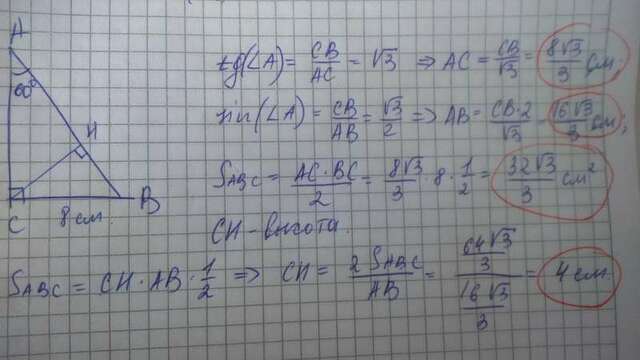 A
60°
H
C
B
8 см
tg(∠A) = CB/AC = √3 ⇒ AC = CB/√3 = 8√3/3 см;
sin(∠A) = CB/AB = √3/2 ⇒ AB = CB·2/√3 = 16√3/3 см;
S_ABC = AC·BC/2 = 8√3/3 · 8 · 1/2 = 32√3/3 см²
CH - высота.
S_ABC = CH · AB · 1/2 ⇒ CH = 2 S_ABC/AB = (64√3/3)/(16√3/3) = 4 см